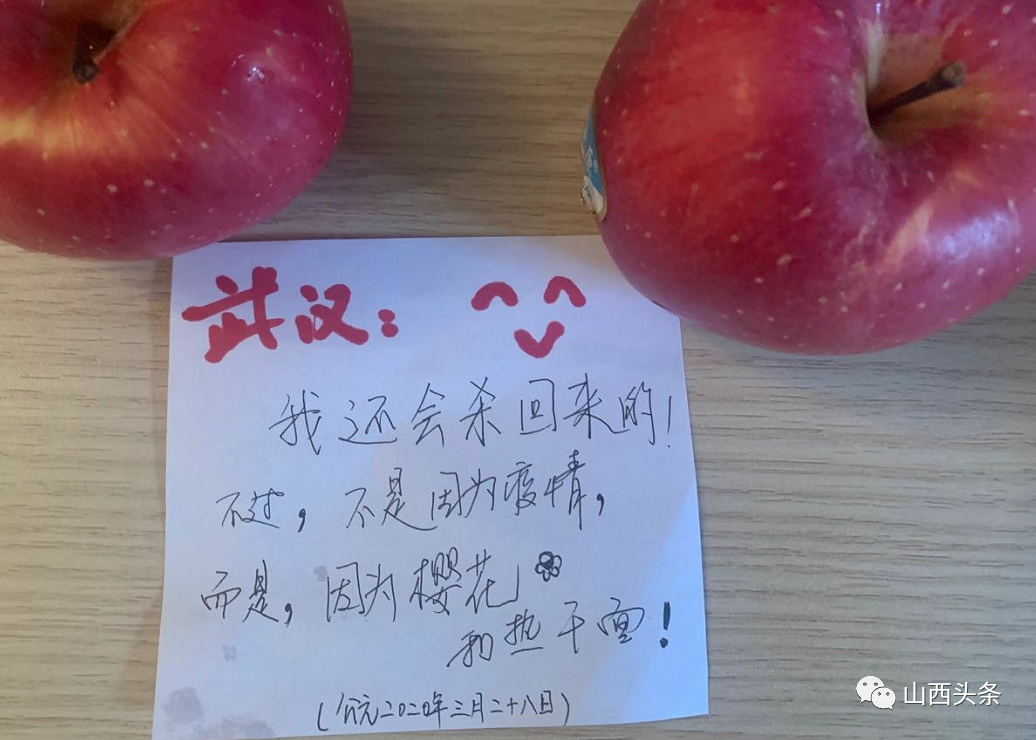 武汉:
我还会杀回来的!
不过,不是因为疫情,
而是,因为樱花
和热干面!
(公元二〇二〇年三月二十八日)
山西头条